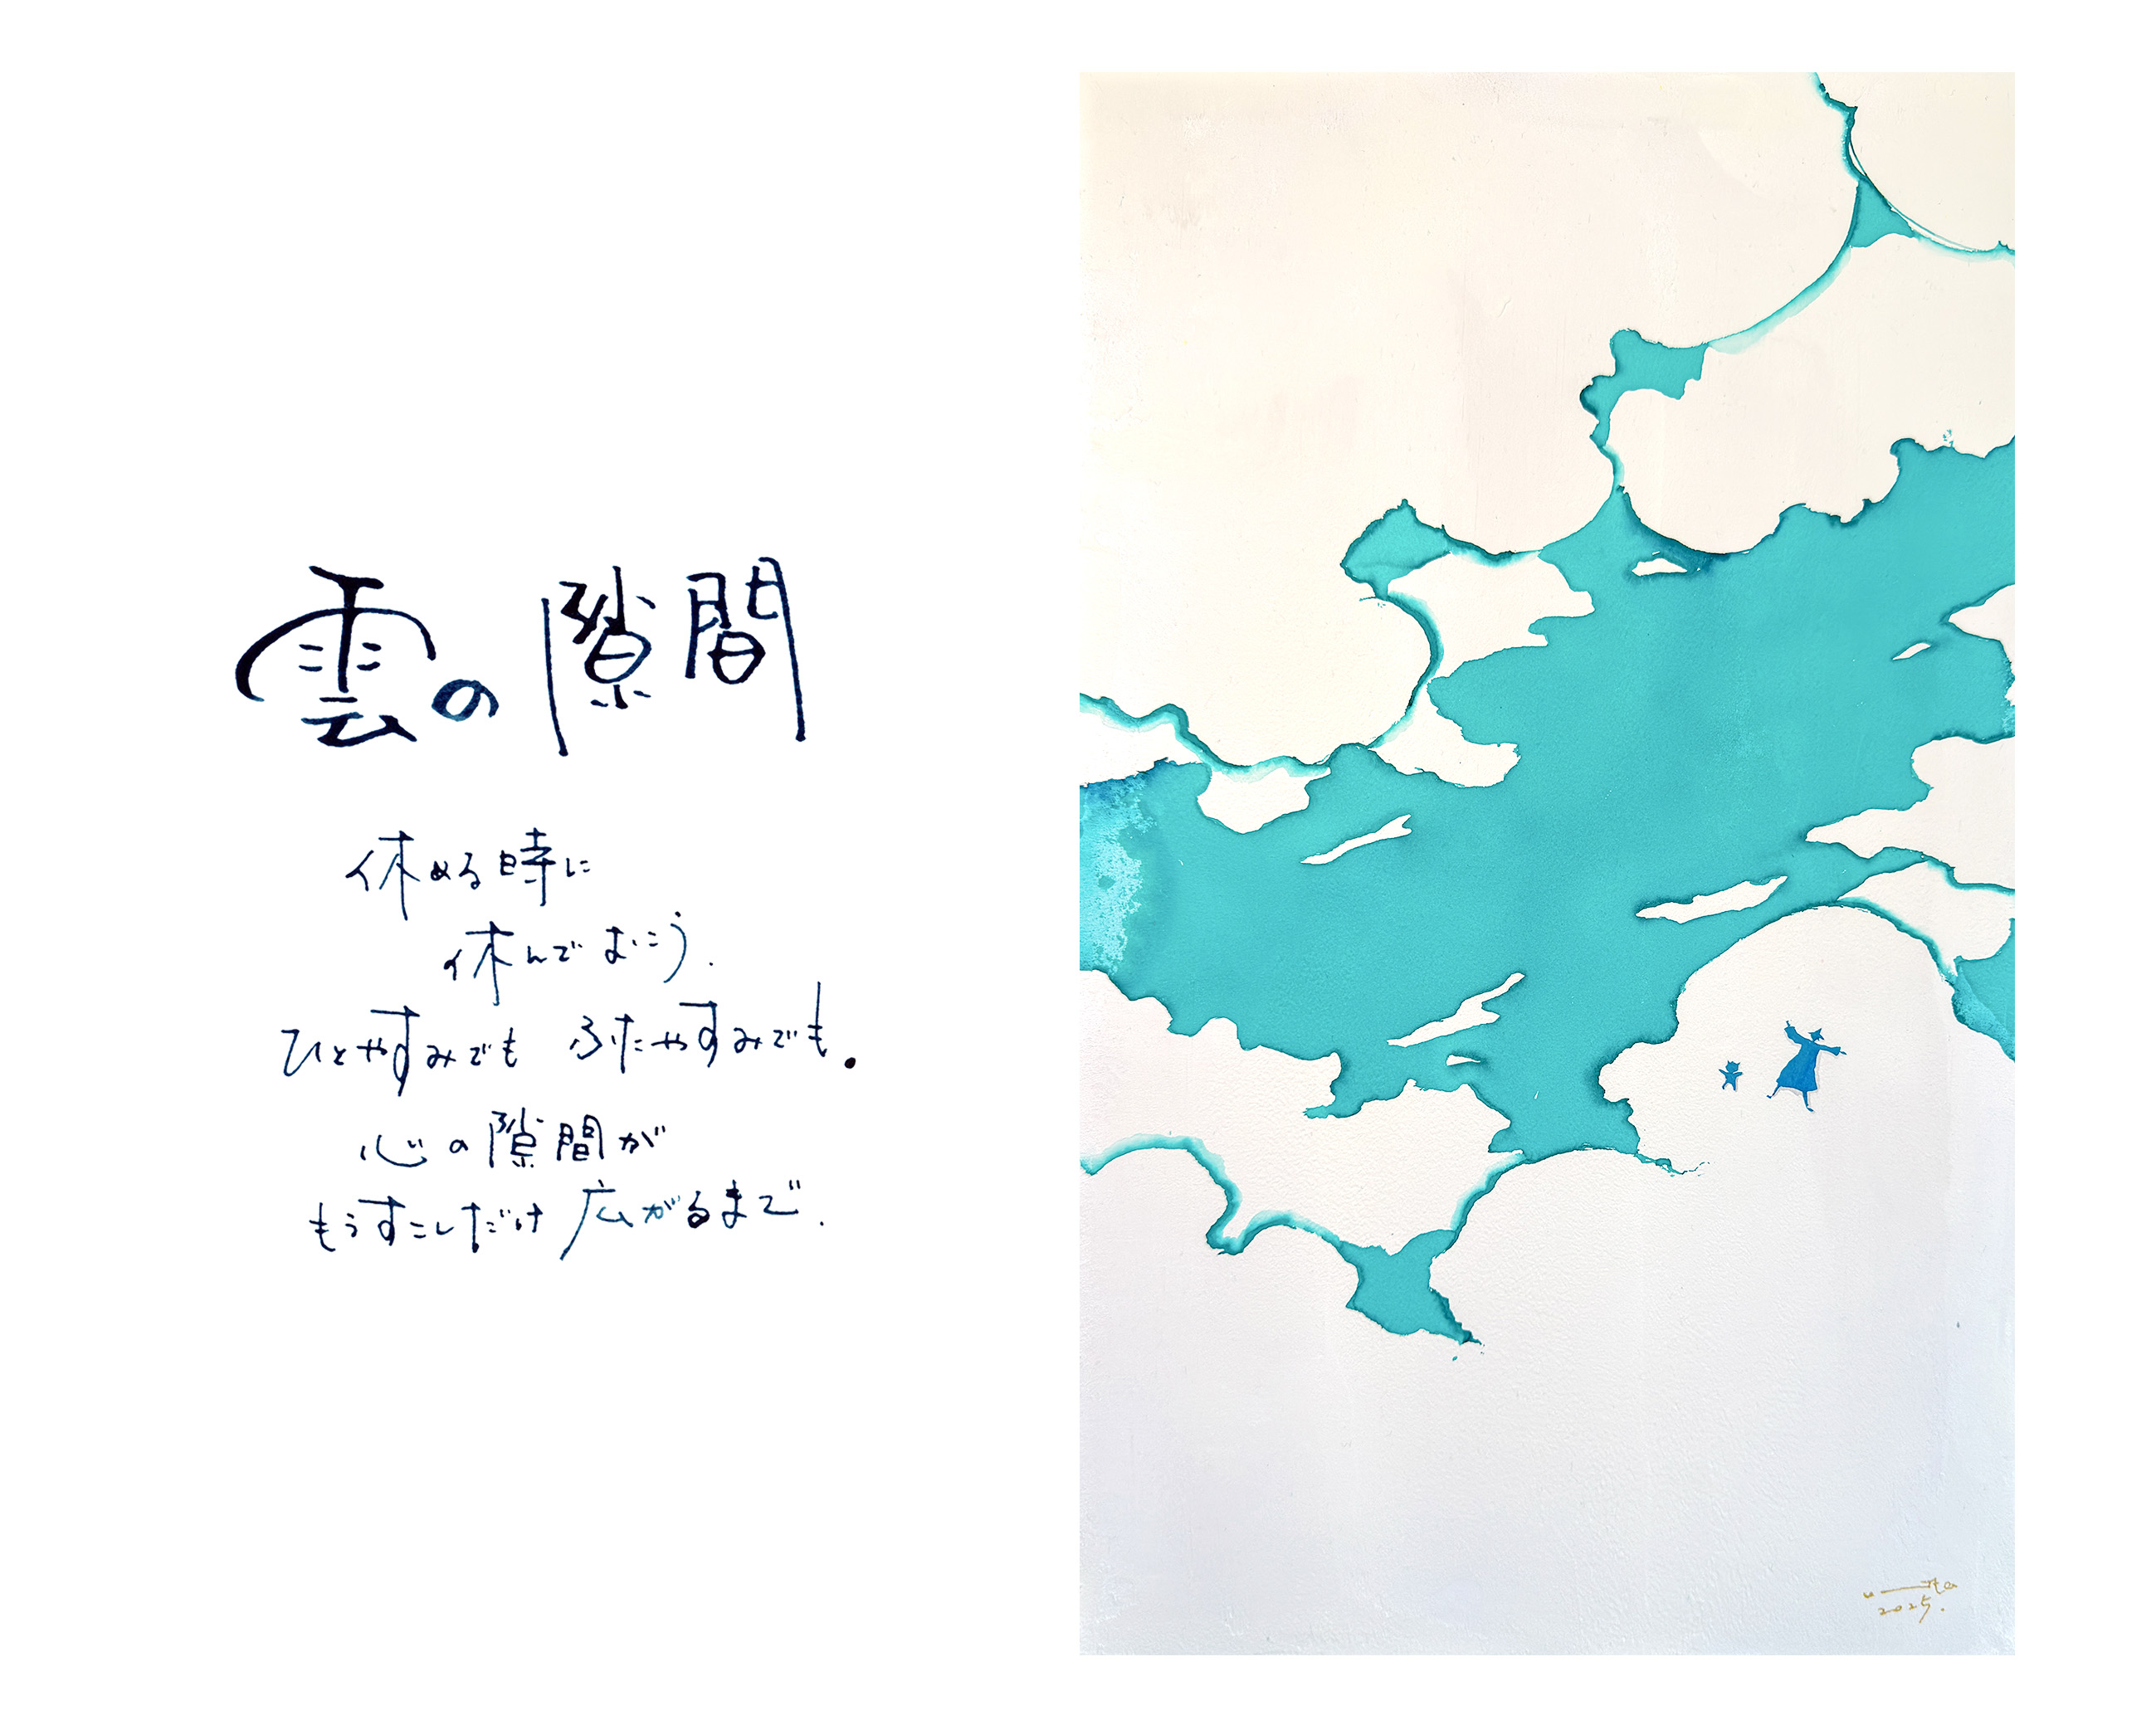 雲の隙間
休める時に
休んでおこう.
ひとやすみでも ふたやすみでも.
心の隙間が
もうすこしだけ 広がるまで.
2025.